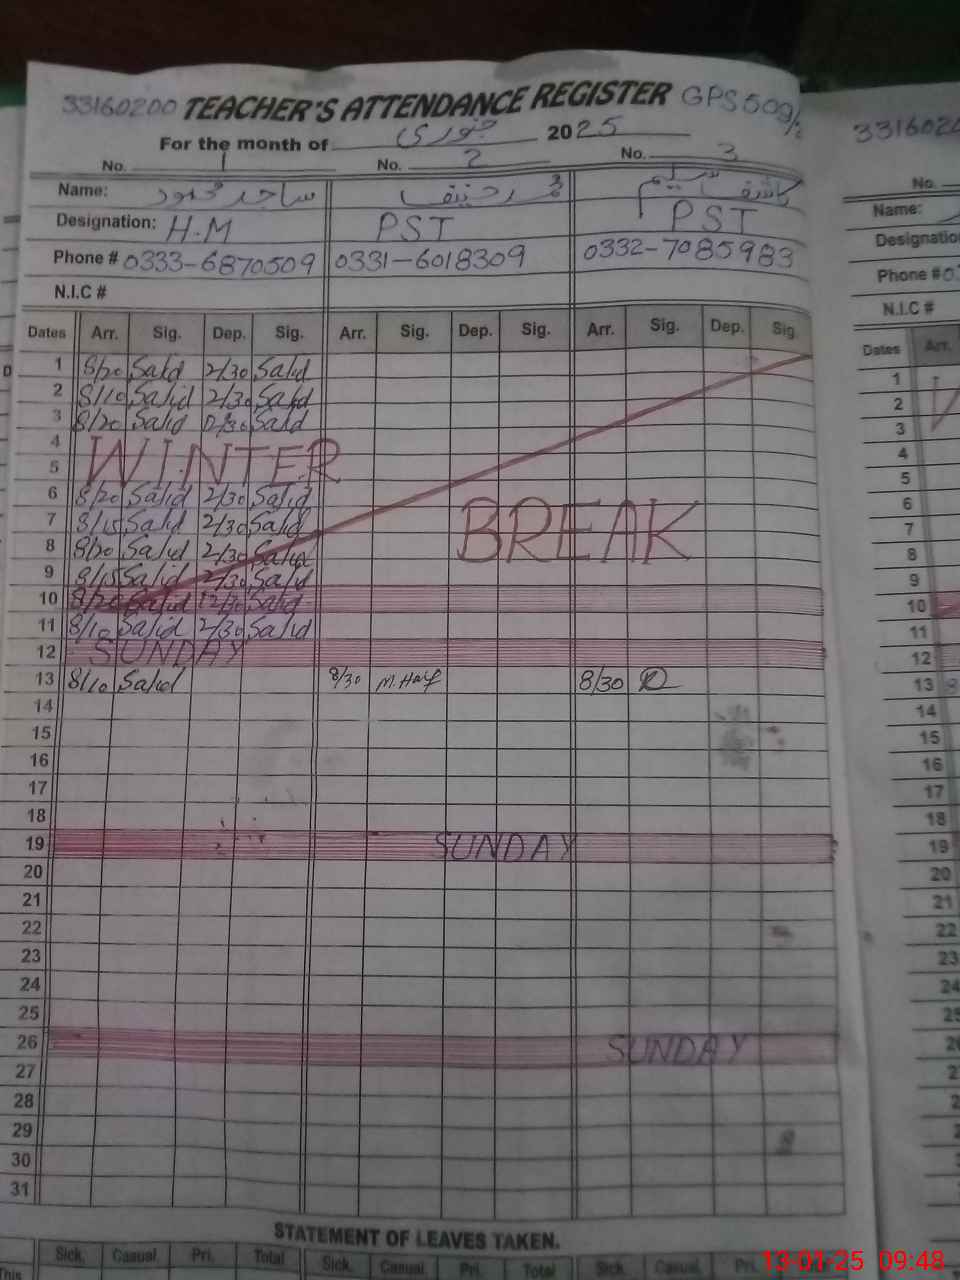 33160200 TEACHER'S ATTENDANCE REGISTER GPS 509/
For the month of جنوری 2025
No. 1 No. 2 No. 3
Name: ساجد محمود محمد حنیف کاشف سلیم
Designation: H.M PST PST
Phone # 0333-6870509 0331-6018309 0332-7085983
N.I.C #
Dates Arr. Sig. Dep. Sig. Arr. Sig. Dep. Sig. Arr. Sig. Dep. Sig.
1 8/20 Sajid 2/30 Sajid
2 8/10 Sajid 2/30 Sajid
3 8/20 Sajid 12/30 Sajid
4
WINTER
5
6 8/20 Sajid 2/30 Sajid
7 8/15 Sajid 2/30 Sajid
BREAK
8 8/20 Sajid 2/30 Sajid
9 8/15 Sajid 2/30 Sajid
10 8/20 Sajid 12/30 Sajid
11 8/10 Sajid 2/30 Sajid
12 SUNDAY
13 8/10 Sajid 8/30 M. Hanf 8/30
14
15
16
17
18
19 SUNDAY
20
21
22
23
24
25
26 SUNDAY
27
28
29
30
31
STATEMENT OF LEAVES TAKEN.
Sick. Casual. Pri. Total Sick. Casual. Pri. Total Sick. Casual.
This
3316020
No.
Name:
Designatio
Phone #0
N.I.C #
Dates Arr.
1
2
3
4
5
6
7
8
9
10
11
12
13 8
14
15
16
17
18
19
20
21
22
23
24
13-01-25 09:48